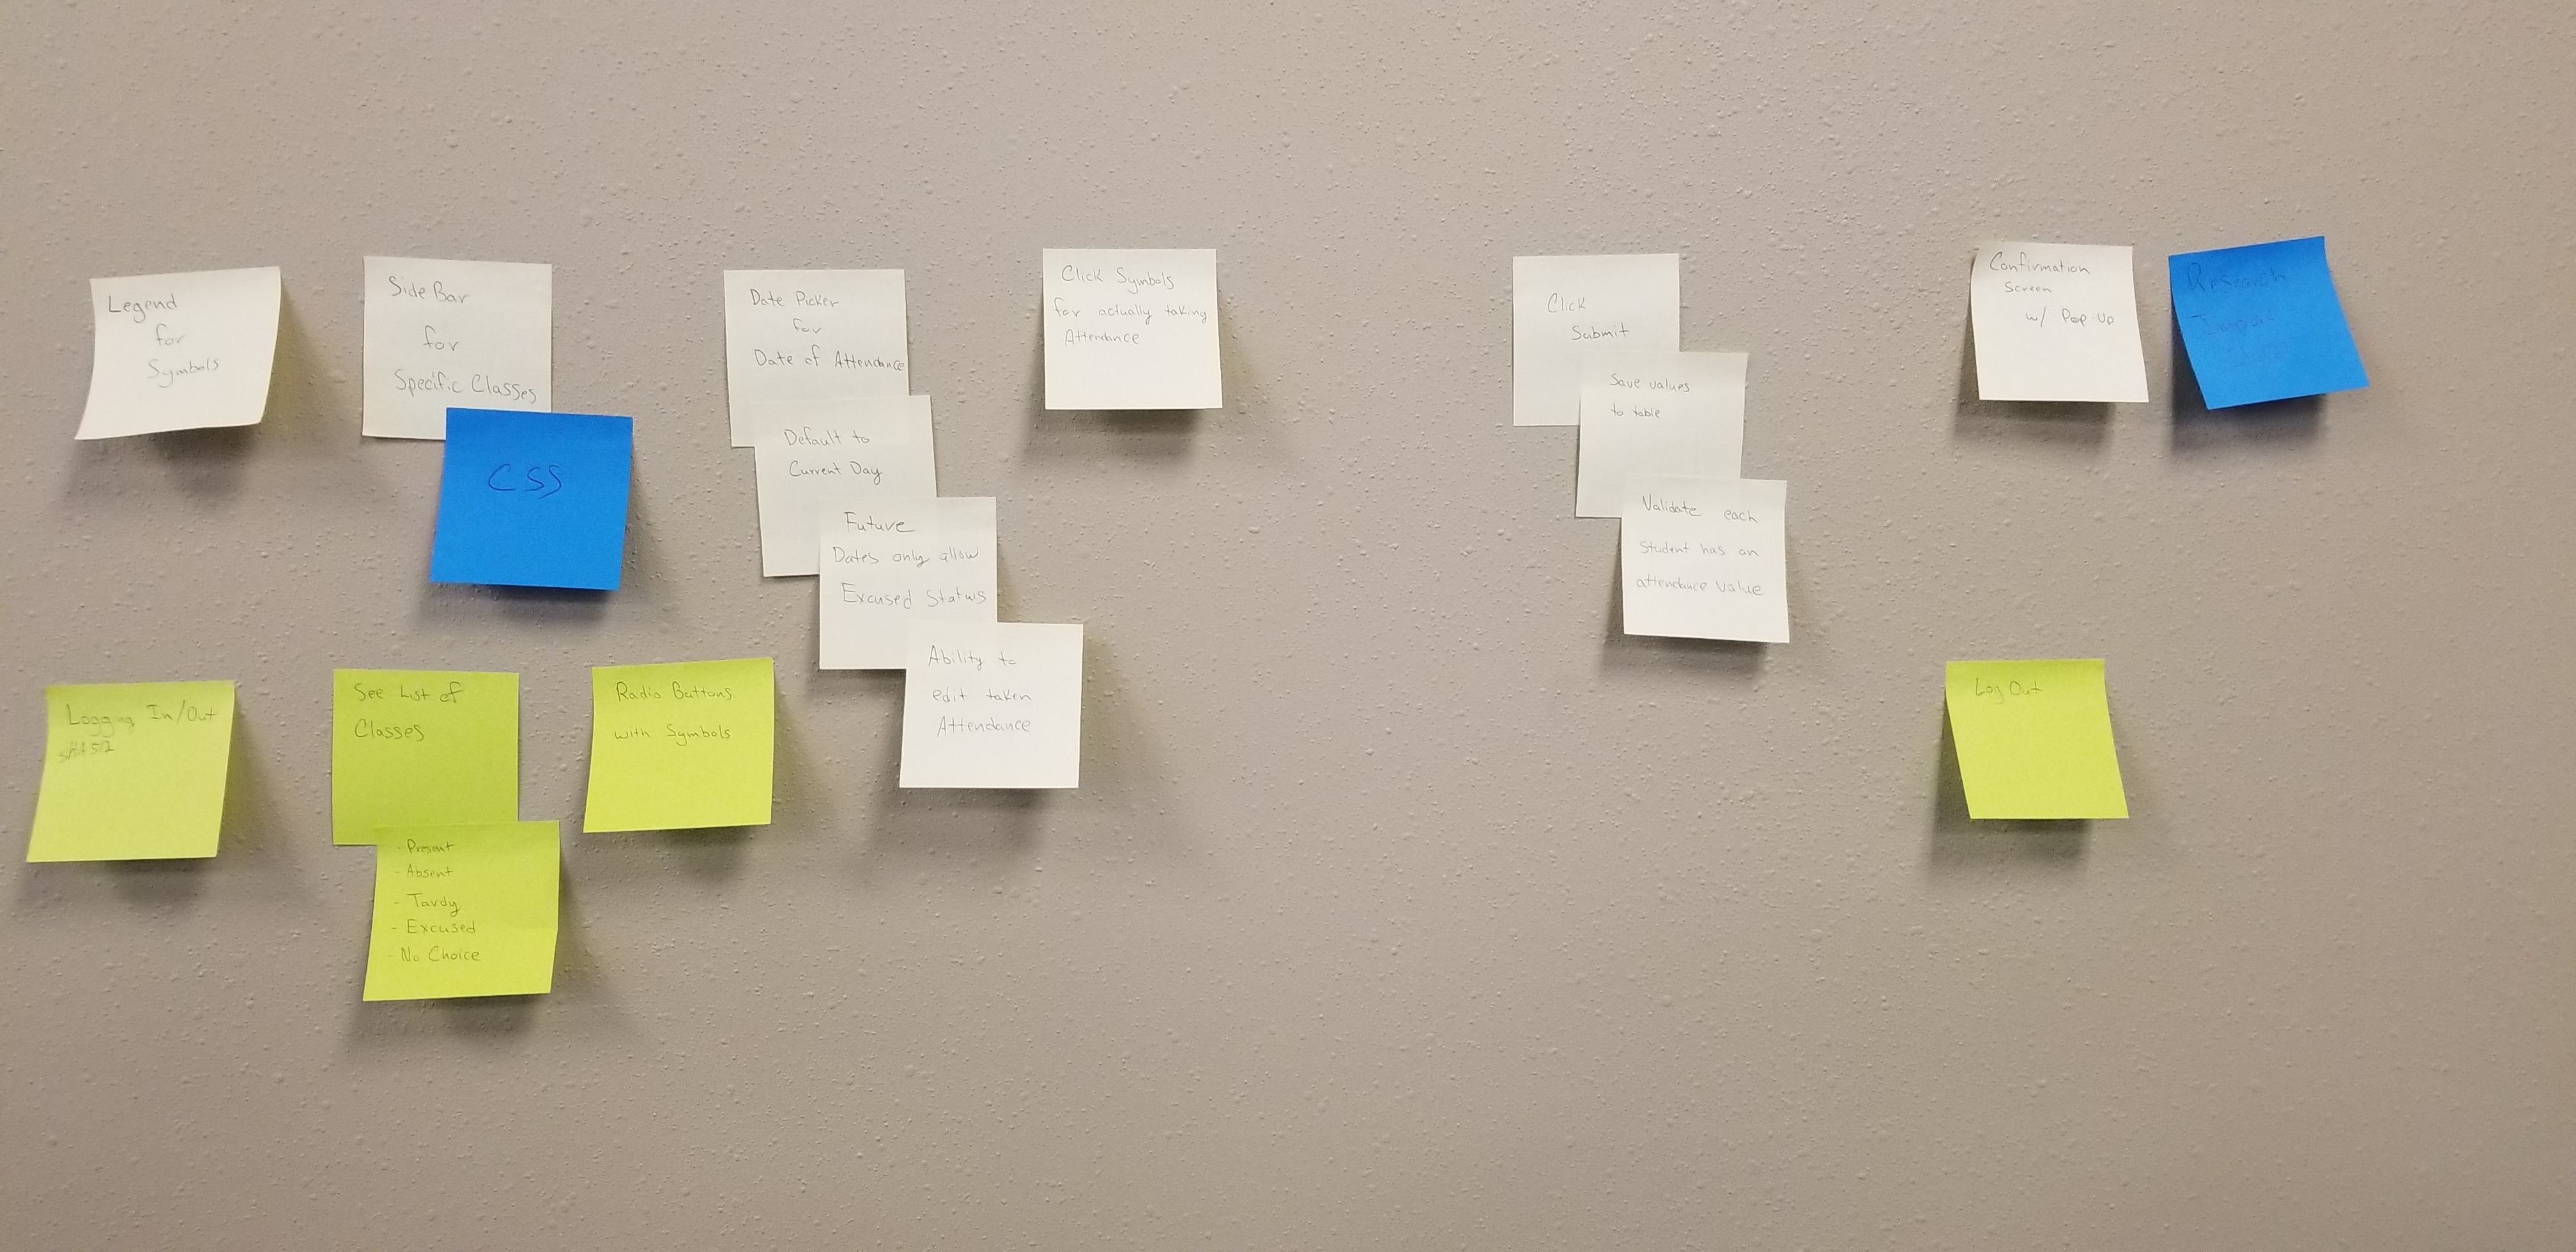 Legend
for
Symbols
Side Bar
for
Specific Classes
CSS
Date Picker
for
Date of Attendance
Default to
Current Day
Future
Dates only allow
Excused Status
Ability to
edit taken
Attendance
Click Symbols
for actually taking
Attendance
Click
Submit
Save values
to table
Validate each
student has an
attendance value
Confirmation
Screen
w/ Pop-Up
Research
Import
Logging In/Out
SHA512
See List of
Classes
- Present
- Absent
- Tardy
- Excused
- No Choice
Radio Buttons
with Symbols
Log Out